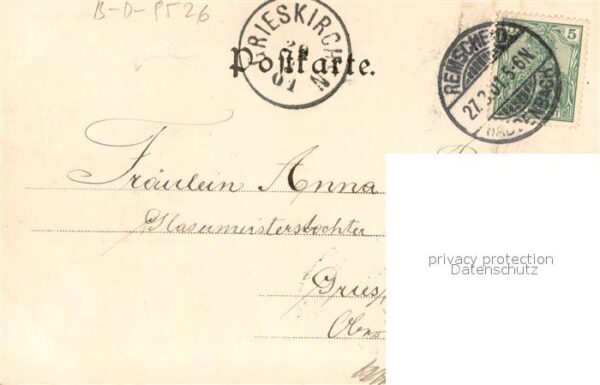 B-D-9526
GRIESKIRCHEN
01
Postkarte.
5
REMSCHEID
27.3.01.5-6N
Fräulein Anna
Glasermeisterstochter
Gries
Ober
privacy protection
Datenschutz